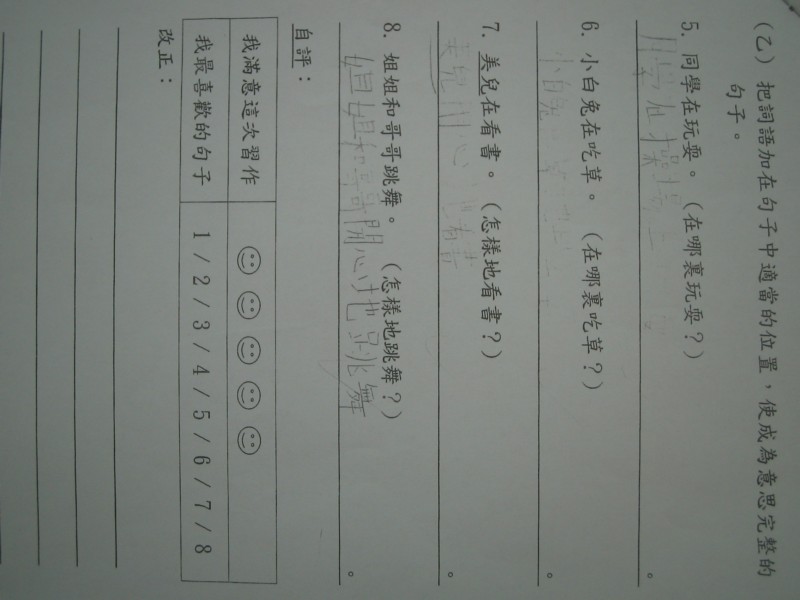 （乙）把詞語加在句子中適當的位置，使成為意思完整的
句子。
5. 同學在玩耍。（在哪裏玩耍？）
在操場上
。
6. 小白兔在吃草。（在哪裏吃草？）
小白兔
。
7. 美兒在看書。（怎樣地看書？）
美兒開心地看書
。
8. 姐姐和哥哥跳舞。（怎樣地跳舞？）
姐姐和哥哥開心地跳舞
。
自評：
我滿意這次習作
我最喜歡的句子 1 / 2 / 3 / 4 / 5 / 6 / 7 / 8
改正：